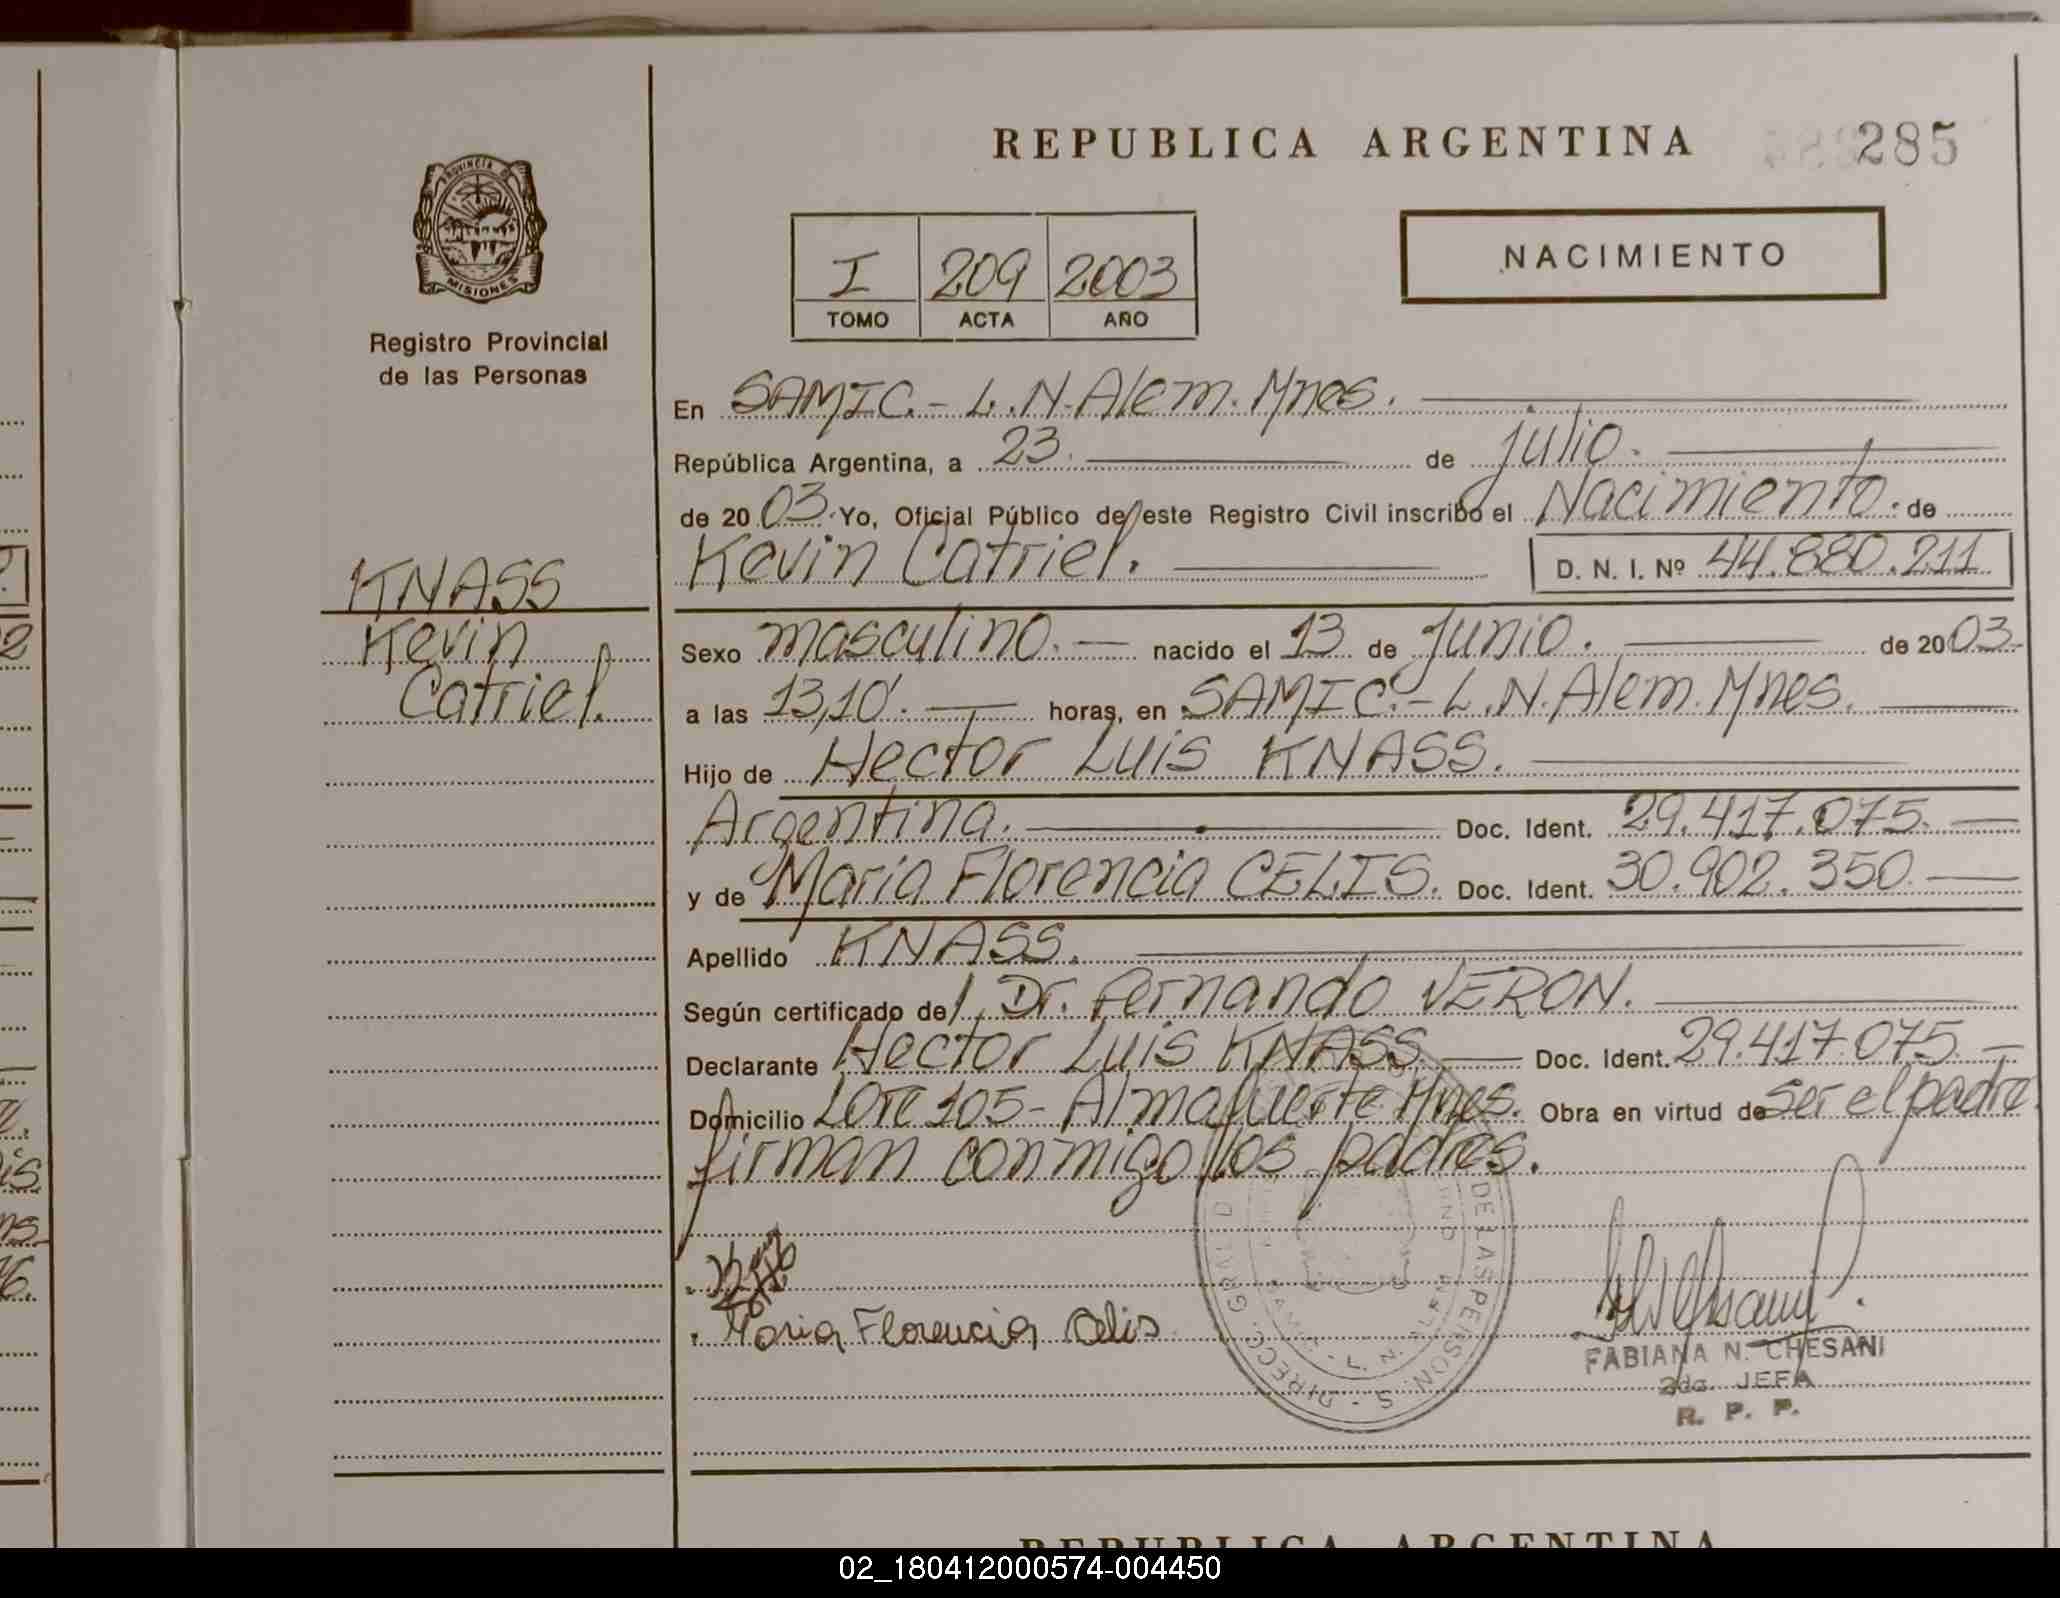 REPUBLICA ARGENTINA
285
PROVINCIA DE
MISIONES
Registro Provincial
de las Personas
I 209 2003
TOMO ACTA AÑO
NACIMIENTO
En SAMIC.- L.N.Alem. Mnes.
República Argentina, a 23. de julio.
de 2003. Yo, Oficial Público de este Registro Civil inscribo el Nacimiento. de
Kevin Catriel. D. N. I. Nº 44.880.211
KNASS
Kevin
Catriel.
Sexo masculino. nacido el 13 de junio. de 2003.
a las 13,10'. horas, en SAMIC.- L.N.Alem. Mnes.
Hijo de Hector Luis KNASS.
Argentina. Doc. Ident. 29.417.075.
y de María Florencia CELIS. Doc. Ident. 30.902.350.
Apellido KNASS.
Según certificado de/ Dr. Fernando VERON.
Declarante Hector Luis KNASS. Doc. Ident. 29.417.075.
Domicilio Lote 105- Almafuerte Mnes. Obra en virtud de ser el padre.
firman conmigo los padres.
Maria Florencia Celis
DIRECC. GRAL D DE LAS PERSON. S
SAMIC - L. N. ALEM
FABIANA N. CHESANI
2da. JEFA
R. P. P.
REPUBLICA ARGENTINA
02_180412000574-004450